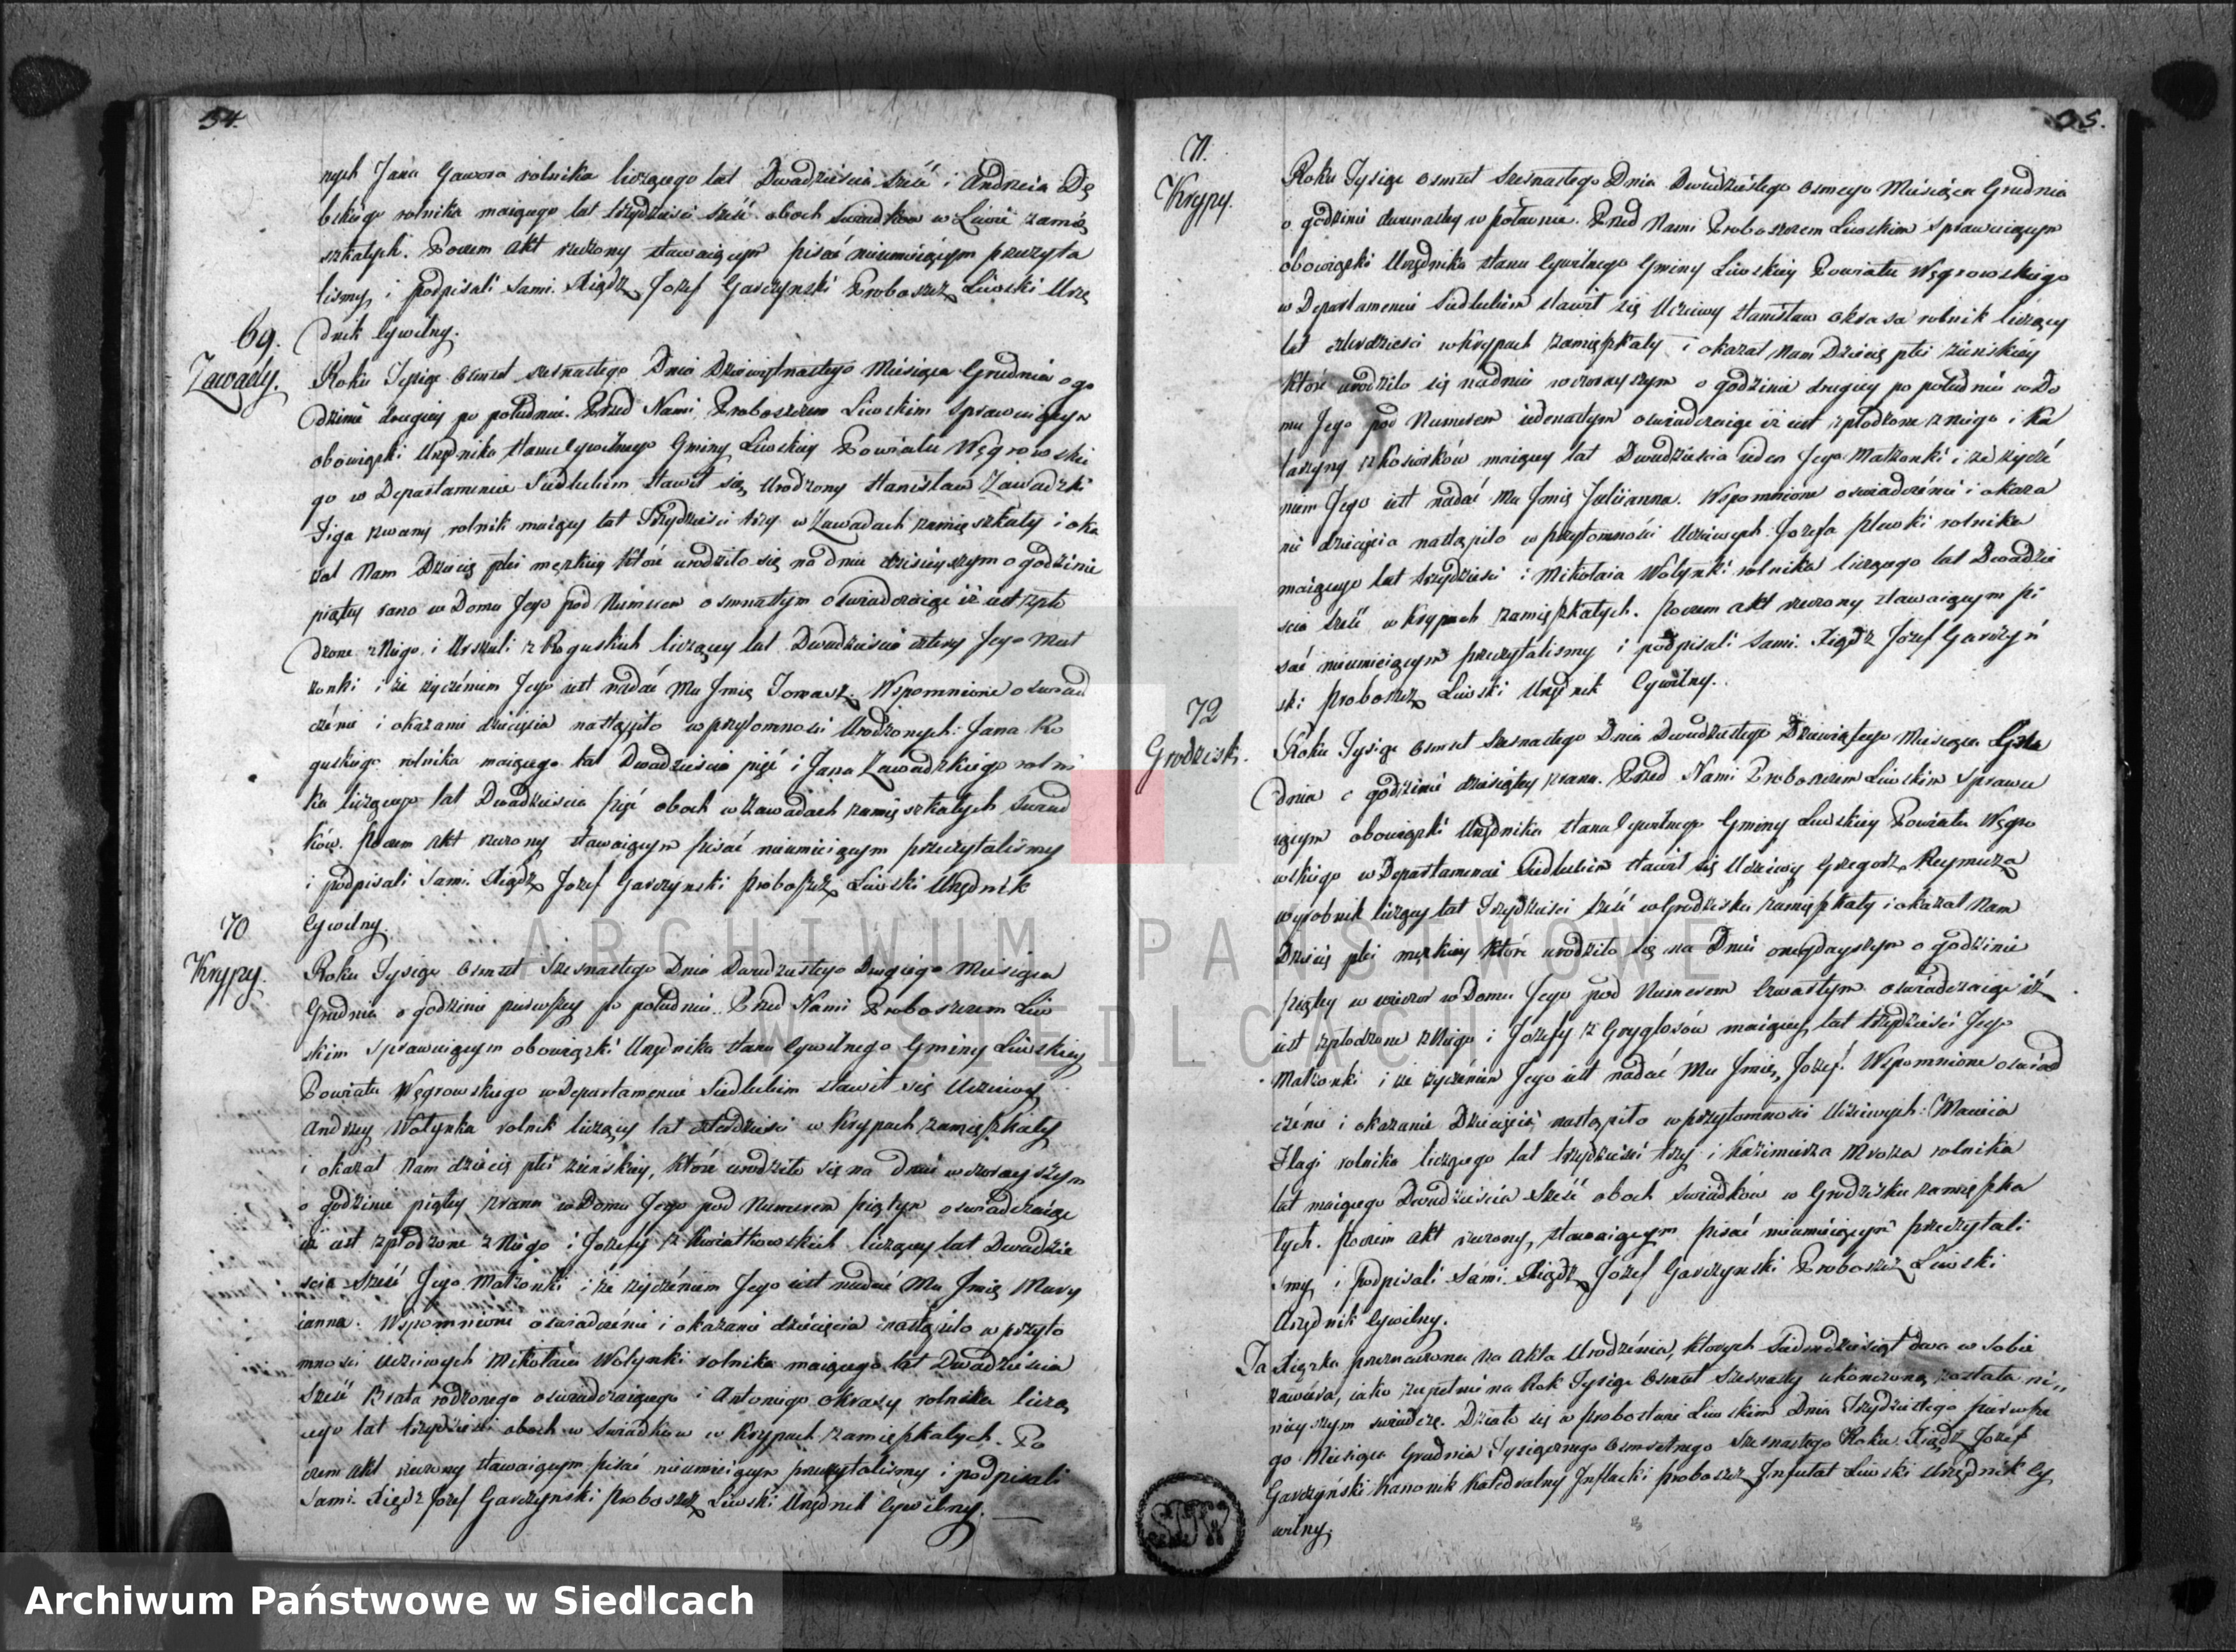 34.
nych Jana Gawora rolnika liczącego lat Dwadzieścia sześć i Andrzeia Dę
bskiego rolnika maiącego lat trzydzieści sześć oboch świadkow w Liwie zamię
szkałych. Poczem akt rzeczony stawaiącym pisać nieumieiącym przeczyta
lismy i podpisali Sami. Xiądz Jozef Garczynski Proboszcz Liwski Urzę
dnik Cywilny.
69.
Zawady.
Roku Tysiąc Osmset szesnastego Dnia Dziewiętnastego Miesiąca Grudnia o go
dzinie drugiey po południu. Przed Nami Proboszczem Liwskim Sprawuiącym
obowiązki Urzędnika stanu Cywilnego Gminy Liwskiey Powiatu Węgrowski
go w Departamencie Siedleckim stawił się Urodzony Stanisław Zawadzki
Figa zwany rolnik maiący lat Trzydzieści trzy w Zawadach zamięszkały i oka
zał Nam Dziecię płci męzkiey które urodziło się na dniu dzisieyszym o godzinie
piątey rano w Domu Jego pod Numerem osmnastym oświadczaiąc iż iest spło
dzone z Niego i Urszuli z Roguskich liczącey lat Dwadzieścia cztery Jego Mał
żonki i że życzeniem Jego iest nadać Mu Jmię Tomasz. Wspomnione oswiad
czenie i okazanie dziecięcia nastąpiło w przytomności Urodzonych: Jana Ro
guskiego rolnika maiącego lat Dwadzieścia pięć i Jana Zawadzkiego rolni
ka liczącego lat Dwadzieścia pięć oboch w Zawadach zamięszkałych Swiad
ków. Poczem akt rzeczony stawaiącym pisać nieumieiącym przeczytalismy
i podpisali Sami. Xiądz Jozef Garczynski Proboszcz Liwski Urzędnik
Cywilny.
70
Krypy.
Roku Tysiąc Osmset Szesnastego Dnia Dwudziestego Drugiego Miesiąca
Grudnia o godzinie pierwszey po południu. Przed Nami Proboszczem Liw
skim sprawuiącym obowiązki Urzędnika stanu Cywilnego Gminy Liwskiey
Powiatu Węgrowskiego w Departamencie Siedleckim stawił się Uczciwy
Andrzey Wołynka rolnik liczący lat czterdzieści w Krypach zamięszkały
i okazał Nam dziecię płci zieńskiey, które urodziło się na dniu wczorayszym
o godzinie piątey zrana w Domu Jego pod Numerem piątym oswiadczaiąc
iż iest zpłodzone z Niego i Jozefy z Kwiatkowskich liczącey lat Dwadzie
scia sześć Jego Małżonki i że życzeniem Jego iest nadać Mu Jmię Mary
ianna. Wspomnione oświadczenie i okazanie dziecięcia nastąpiło w przyto
mności Uczciwych Mikołaia Wołynki rolnika maiącego lat Dwadzieścia
Sześć Brata rodzonego oświadczaiącego i Antoniego Okrasy rolnika licza
cego lat trzydzieści oboch w Swiadkow w Krypach zamięszkałych. Po
czem akt rzeczony stawaiącym pisać nieumieiącym przeczytalismy i podpisali
Sami. Xiądz Jozef Garczynski Proboszcz Liwski Urzędnik Cywilny.
35.
71.
Krypy.
Roku Tysiąc osmset Szesnastego Dnia Dwudziestego Osmego Miesiąca Grudnia
o godzinie dwunastey w południe. Przed Nami Proboszczem Liwskim Sprawuiącym
obowiązki Urzędnika stanu Cywilnego Gminy Liwskiey Powiatu Węgrowskiego
w Departamencie Siedleckim stawił się Uczciwy Stanisław Okrasa rolnik liczący
lat czterdzieści w Krypach zamięszkały i okazał Nam Dziecię płci zieńskiey
które urodziło się na dniu wczorayszym o godzinie drugiey po południu w Do
mu Jego pod Numerem iedenastym oświadczaiąc iż iest zpłodzone z niego i Ka
tarzyny z Kosiorków maiącey lat Dwadzieścia ieden Jego Małżonki i że życze
niem Jego iest nadać Mu Jmię Julianna. Wspomnione oswiadczenie i okaza
nie dziecięcia nastąpiło w przytomności Uczciwych Jozefa Plewki rolnika
maiącego lat trzydzieści i Mikołaia Wołynki rolnika liczącego lat Dwadzie
scia sześć w Krypach zamięszkałych. Poczem akt rzeczony stawaiącym pi
sać nieumieiącym przeczytalismy i podpisali Sami. Xiądz Jozef Garczyń
ski Proboszcz Liwski Urzędnik Cywilny.
72
Grodzisk.
Roku Tysiąc Osmset Szesnastego Dnia Dwudziestego Dziewiątego Miesiąca Gru
dnia o godzinie dziesiątey zrana. Przed Nami Proboszczem Liwskim Sprawu
iącym obowiązki Urzędnika stanu Cywilnego Gminy Liwskiey Powiatu Węgro
wskiego w Departamencie Siedleckim stawił się Uczciwy Grzegorz Reymuza
wyrobnik liczący lat Trzydzieści sześć w Grodzisku zamięszkały i okazał Nam
Dziecię płci męzkiey które urodziło się na Dniu onegdayszym o godzinie
piątey w wieczor w Domu Jego pod Numerem Czwartym oświadczaiąc iż
iest zpłodzone z Niego i Jozefy z Gryglosów maiącey lat trzydzieści Jego
Małżonki i że życzeniem Jego iest nadać Mu Jmię Józef. Wspomnione oświad
czenie i okazanie Dziecięcia nastąpiło w przytomności Uczciwych: Macieia
Flagi rolnika liczącego lat trzydzieści trzy i Kazimierza Mroza rolnika
lat maiącego Dwadzieścia Sześć oboch świadków w Grodzisku zamięszka
łych. Poczem akt rzeczony, stawaiącym pisać nieumieiącym przeczytali
smy i podpisali Sami. Xiądz Józef Garczynski Proboszcz Liwski
Urzędnik Cywilny.
Ta Xiązka przeznaczona na Akta Urodzenia, ktorych Siedmdziesiąt dwa w sobie
zawiera, iako zupełnie na Rok Tysiąc Osmset Szesnasty ukończona została ni„
nieyszym swiadczę. Działo się w Probostwie Liwskim Dnia Trzydziestego pierwsze
go Miesiąca Grudnia Tysiącznego Osmsetnego Szesnastego Roku. Xiądz Jozef
Garczyński Kanonik Katedralny Inflacki Proboszcz Infułat Liwski Urzędnik Cy
wilny.
ARCHIWUM PAŃSTWOWE
W SIEDLCACH
Archiwum Państwowe w Siedlcach